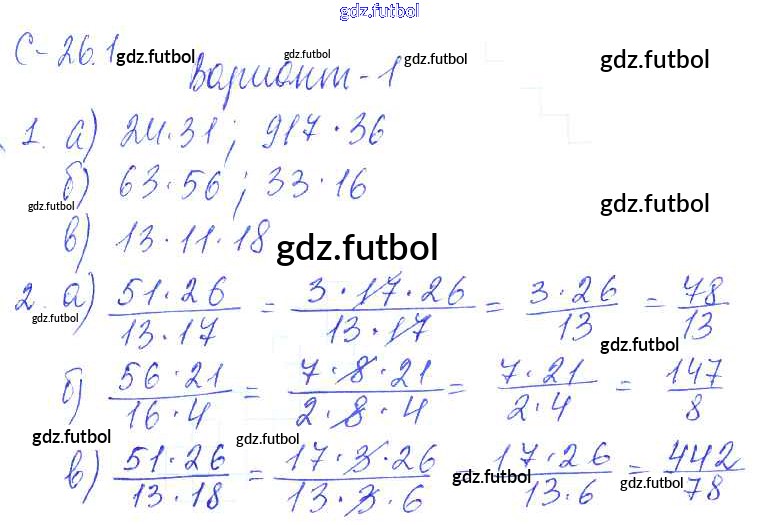 gdz.futbol
С-26.1 gdz.futbol
Вариант-1 gdz.futbol gdz.futbol gdz.futbol
1. а) 24·31; 917·36
б) 63·56; 33·16
gdz.futbol gdz.futbol
в) 13·11·18 gdz.futbol
2. а) 51·26/13·17 = 3·17·26/13·17 = 3·26/13 = 78/13
gdz.futbol gdz.futbol
б) 56·21/16·4 = 7·8·21/2·8·4 = 7·21/2·4 = 147/8
gdz.futbol gdz.futbol
в) 51·26/13·18 = 17·3·26/13·3·6 = 17·26/13·6 = 442/78
gdz.futbol gdz.futbol